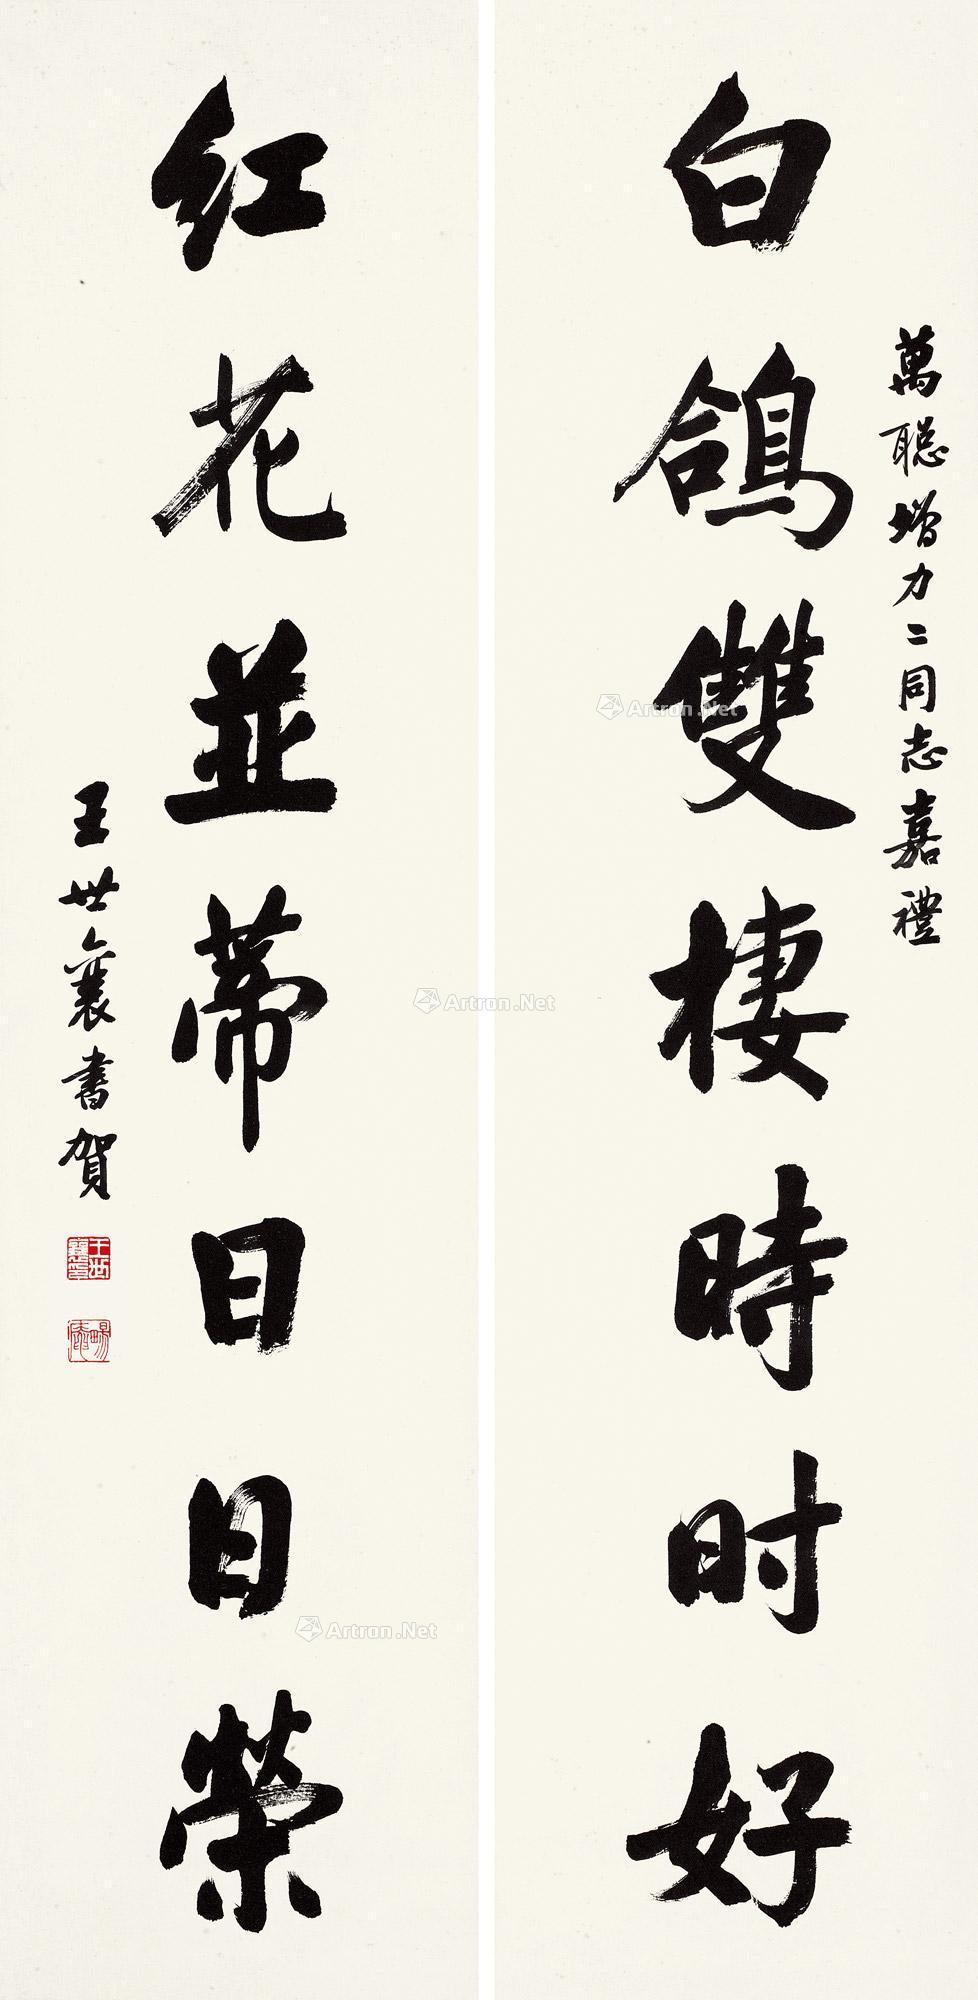 萬聪增力二同志嘉禮
白鴿雙棲時时好
红花並蒂日日榮
王世襄書賀
王世襄印
暢安
Artron.Net
Artron.Net
Artron.Net